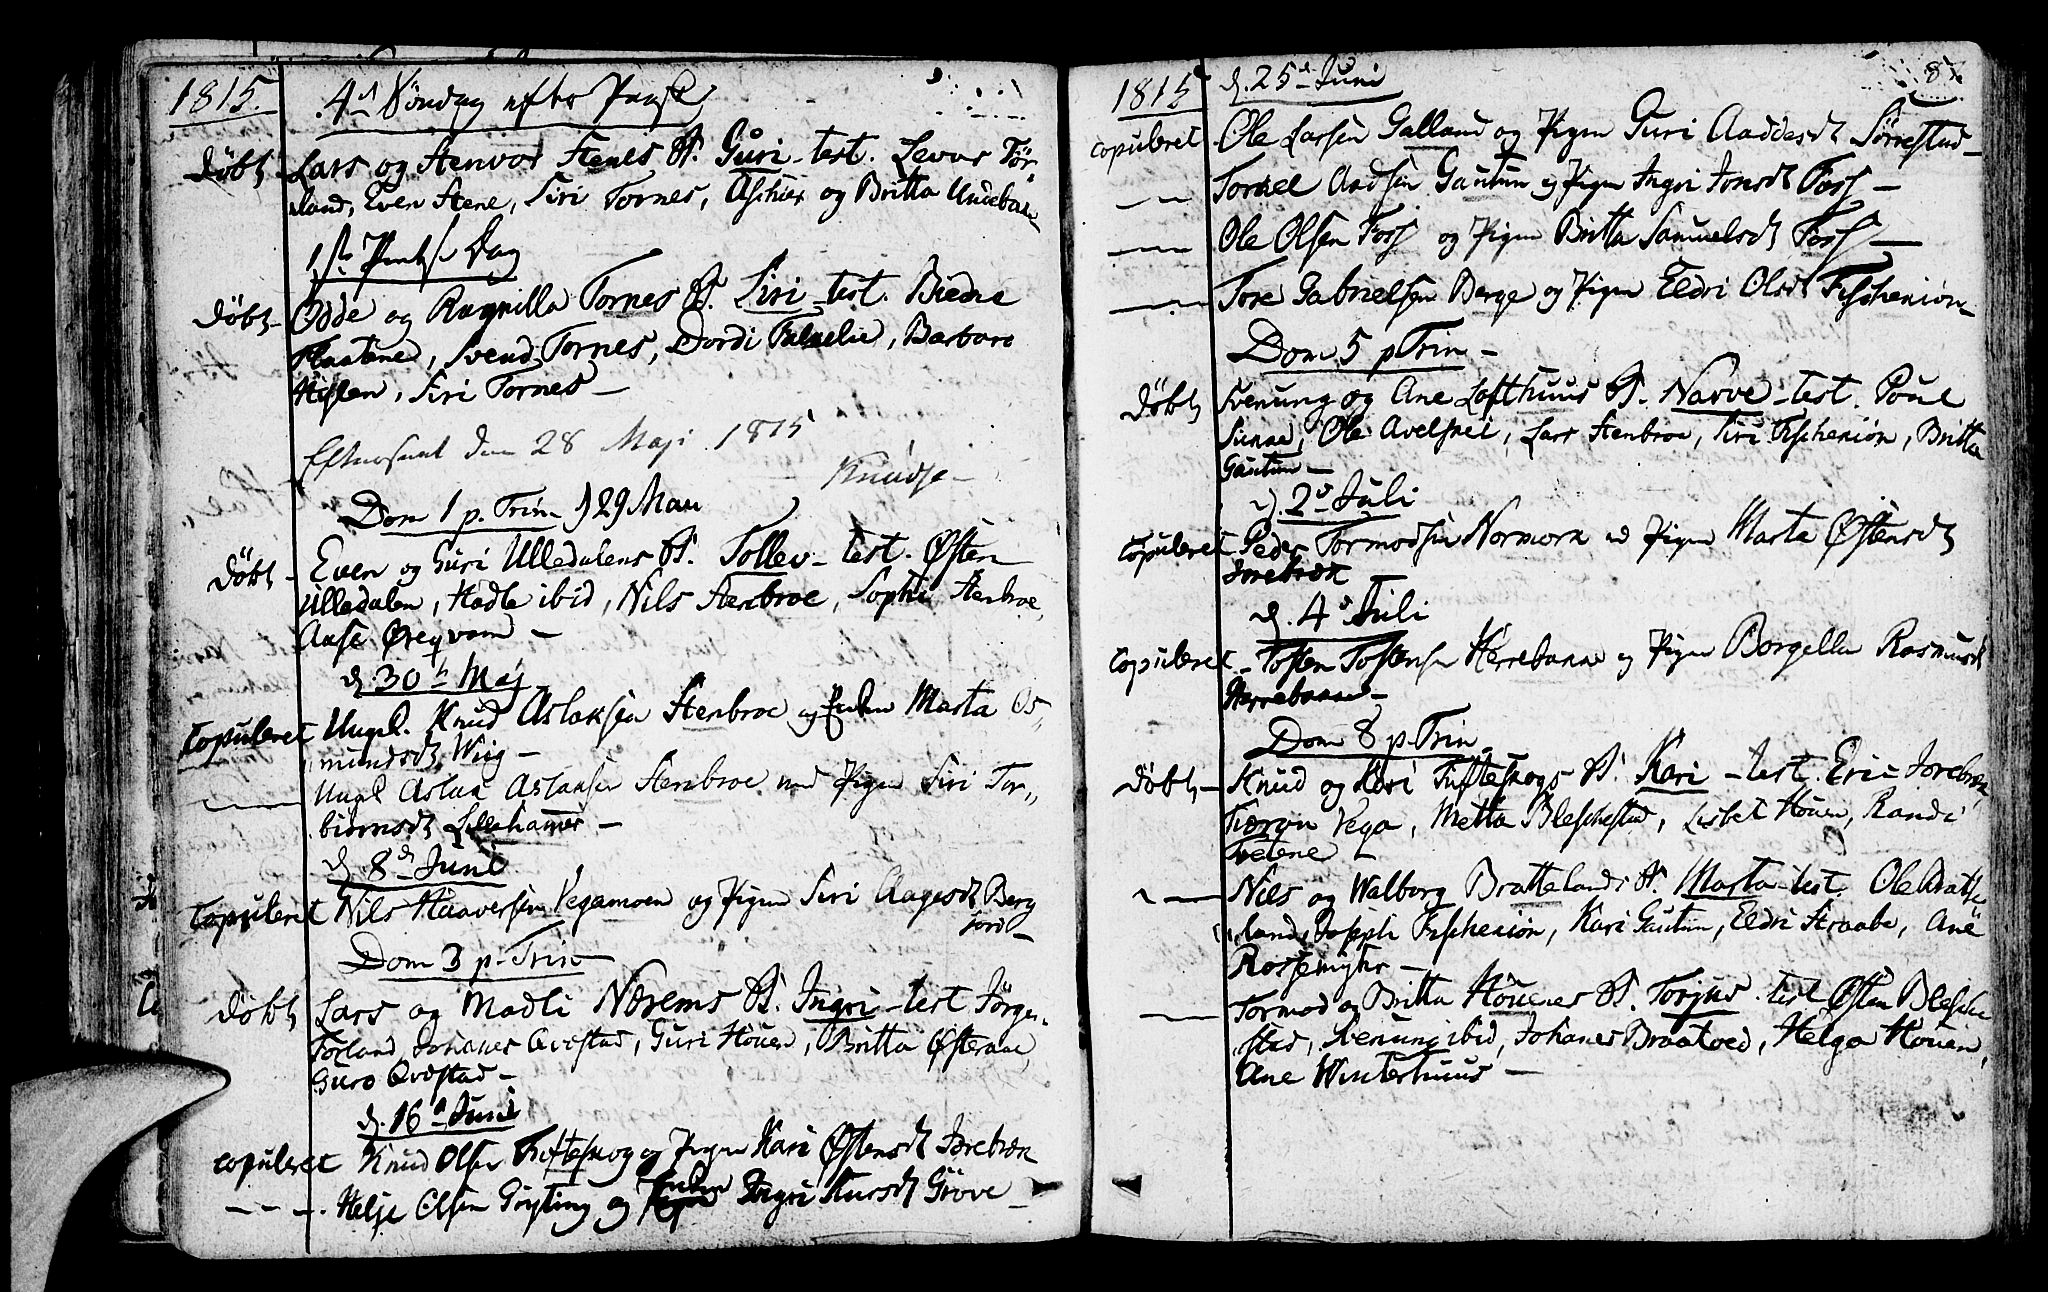 1815.
4d Søndag efter Paask
Døbt Lars og Stenvor Stenes B. Guri - test. Levor Tør-
land, Even Stene, Siri Tornes, Aschier og Britta Undebakke
1ste Pintse Dag
Døbt - Odde og Ragnilla Tornes B. Siri - test. Biedne
Flaatene, Svend Tornes, Dordi Falnelie, Barbara
Hislen, Siri Tornes -
Efterseet den 28 Maji 1815
Knudse
Dom 1 p. Trin d 29 Mai
Døbt - Even og Guri Ulledalens B. Tollev - test. Østen
Ulledalen, Hadle ibid, Nils Stenbroe, Sophi Stenbroe,
Aase Øreqvam -
d. 30te Maj
Copuleret Ungk. Knud Aslaksen Stenbroe og Enken Marta Os-
mundsdt Wiig -
Ungk Aslak Aslaksen Stenbroe med Pigen Siri Tor-
biørnsdt Lillehammer -
d 8de Junii
Copuleret Nils Haaversen Vegamoen og Pigen Siri Aagesdt Berg
Jord -
Dom 3 p. Trin
Døbt Lars og Madli Nærems B. Ingri - test Jørgen
Torland, Johanes Qvæstad, Guri Houen, Britta Østeraae,
Guro Qvæstad -
d. 16d Junii
copuleret Knud Olsen Tufteskog og Pigen Kari Østensdt Jorebrek
- - - . Helje Olsen Gryting og Enken Ingri Siursdt Grove -
87.
1815
d. 25d Juni
copuleret Ole Larsen Galland og Pigen Guri Aaddesdt Sørrestad -
Torkel Aadsen Gautun og Pigen Ingri Jonsdt Foss -
Ole Olsen Foss og Pigen Britta Samuelsdt Foss -
Tore Gabrielsen Berge og Pigen Eldri Olsdt Fischeniøn -
Dom 5 p Trin -
Døbt Svenung og Ane Lofthuus B. Narve - test. Poul
Sunna, Ole Avelsnei, Lars Stenbroe, Siri Fischeniøn, Britta
Gautun -
d. 2d Juli
Copuleret Peder Tormodsen Normork og Pigen Marta Østensdt
Jorebrek
d. 4d Juli
Copuleret - Tosten Tostensen Herrebanne og Pigen Borgella Rasmusdt
Herrebanne -
Dom 8 p. Trin
Døbt - Knud og Kari Tufteskogs B. Kari - test. Eric Jorebrek,
Torgun Vega, Metta Bleskestad, Lisbet Houen, Randi
Tveitene -
Nils og Walborg Brattelands B. Marta - test. Ole Bratte
land, Joseph Fischeniøn, Kari Gautun, Eldri Straabe, Ane
Rossemyhr -
Tormod og Britta Houenes B. Torjus - test Østen Bleske
stad, Svenung ibid, Johanes Braatved, Helga Houen,
Ane Winterhuus -